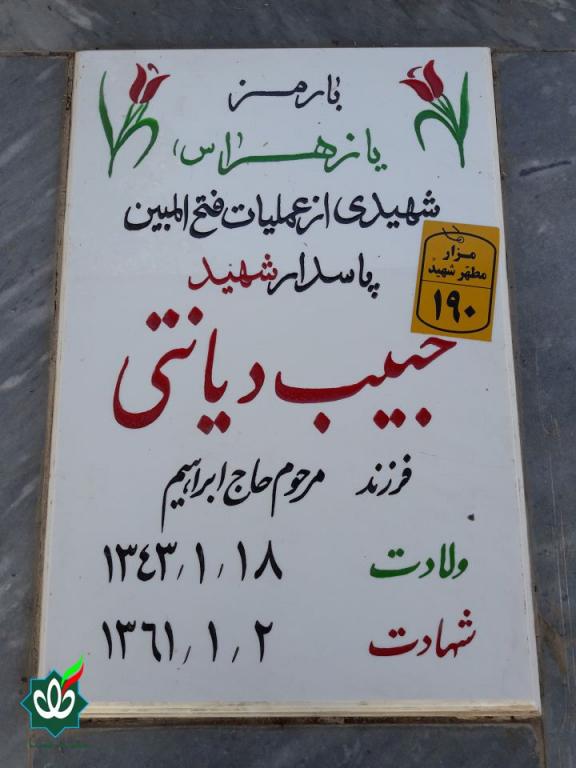 با رمز
یا زهرا (س)
شهیدی از عملیات فتح المبین
پاسدار شهید
مزار
مطهر شهید
۱۹۰
حبیب دیانتی
فرزند مرحوم حاج ابراهیم
ولادت ۱۳۴۳/۱/۱۸
شهادت ۱۳۶۱/۱/۲